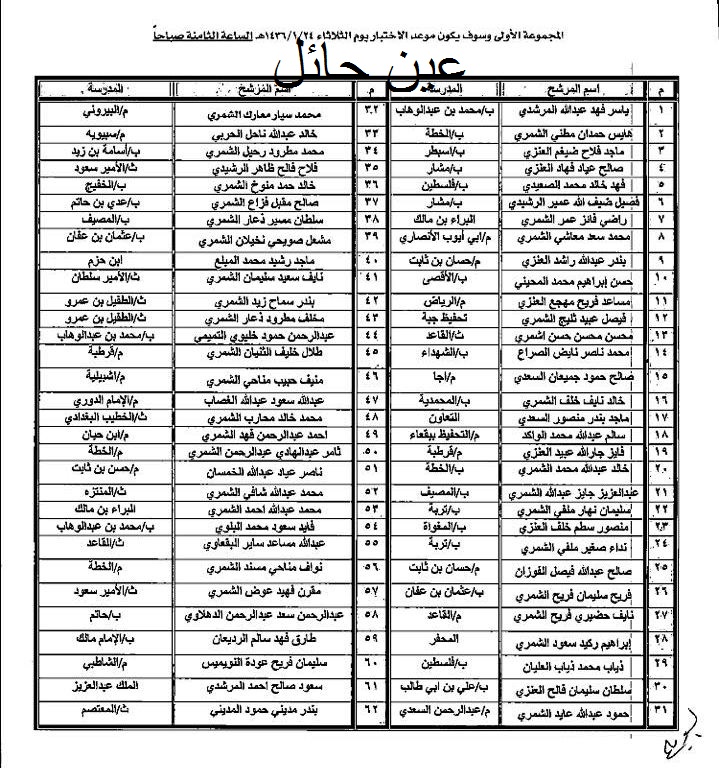 المجموعة الأولى وسوف يكون موعد الاختبار يوم الثلاثاء ١٤٣٦/١/٢٤هـ الساعة الثامنة صباحاً
عين حائل
م اسم المرشح المدرسة م. اسم المرشح المدرسة
١ ياسر فهد عبدالله المرشدي ب/محمد بن عبدالوهاب ٣٢ محمد سيار معارك الشمري م/البيروني
٢ هايس حمدان مطني الشمري ب/الخطة ٣٣ خالد عبدالله ناحل الحربي م/سيبويه
٣ ماجد فلاح ضيغم العنزي ب/اسبطر ٣٤ محمد مطرود رحيل الشمري ب/أسامة بن زيد
٤ صالح عياد فهاد العنزي ب/مشار ٣٥ فلاح فالح ظاهر الرشيدي ث/الأمير سعود
٥ فهد خالد محمد الصعيدي ب/فلسطين ٣٦ خالد حمد منوخ الشمري ب/الخفيج
٦ فضيل ضيف الله عمير الرشيدي ب/مشار ٣٧ صالح مقبل فزاع الشمري ب/عدي بن حاتم
٧ راضي فائز عمر الشمري البراء بن مالك ٣٨ سلطان مسير ذعار الشمري ب/المصيف
٨ محمد سعد معاشي الشمري م/ابي ايوب الأنصاري ٣٩ مشعل صويحي نخيلان الشمري ب/عثمان بن عفان
٩ بندر عبدالله راشد العنزي م/حسان بن ثابت ٤٠ ماجد رشيد محمد المبلع ابن حزم
١٠ حسن إبراهيم محمد المحيني ب/الأقصى ٤١ نايف سعيد سليمان الشمري ث/الأمير سلطان
١١ مساعد فريح مهجع العنزي م/الرياض ٤٢ بندر سماح زيد الشمري ث/الطفيل بن عمرو
١٢ فيصل عبيد ثليج الشمري تحفيظ جبة ٤٣ مخلف مطرود ذعار الشمري ث/الطفيل بن عمرو
١٣ محسن محسن حسن الشمري ث/القاعد ٤٤ عبدالرحمن حمود خليوي التميمي ب/محمد بن عبدالوهاب
١٤ محمد ناصر نايض الصراع ب/الشهداء ٤٥ طلال خليف الثنيان الشمري م/قرطبة
١٥ صالح حمود جميعان السعدي م/اجا ٤٦ منيف حبيب مناحي الشمري م/اشبيلية
١٦ خالد نايف خلف الشمري ب/المحمدية ٤٧ عبدالله سعود عبدالله الغصاب م/الإمام الدوري
١٧ ماجد بندر منصور السعدي التعاون ٤٨ محمد خالد محارب الشمري ث/الخطيب البغدادي
١٨ سالم عبدالله محمد الواكد م/التحفيظ ببقعاء ٤٩ احمد عبدالرحمن فهد الشمري م/ابن حيان
١٩ فايز جارالله عبيد العنزي م/قرطبة ٥٠ ثامر عبدالهادي عبدالرحمن الشمري م/الخطة
٢٠ خالد عبدالله محمد الشمري ب/الخطة ٥١ ناصر عياد عبدالله الخمسان م/حسن بن ثابت
٢١ عبدالعزيز جايز عبدالله الشمري ب/المصيف ٥٢ محمد عبدالله شافي الشمري ث/المنتزه
٢٢ سليمان نهار ملفي الشمري ب/تربة ٥٣ محمد عبدالله احمد الشمري البراء بن مالك
٢٣ منصور سطم خلف العنزي ب/المغواة ٥٤ فايد سعود محمد البلوي ب/محمد بن عبدالوهاب
٢٤ نداء صغير ملفي الشمري ب/تربة ٥٥ عبدالله مساعد ساير البقعاوي ث/القاعد
٢٥ صالح عبدالله فيصل الفوزان م/حسان بن ثابت ٥٦ نواف مناحي مسند الشمري م/الخطة
٢٦ فريح سليمان فريح الشمري ب/عثمان بن عفان ٥٧ مقرن فهيد عوض الشمري ث/الأمير سعود
٢٧ نايف حضيري فريح الشمري م/القاعد ٥٨ عبدالرحمن سعد عبدالرحمن الدهلاوي ب/حاتم
٢٨ إبراهيم ركيد سعود الشمري المحفر ٥٩ طارق فهد سالم الرديعان ب/الإمام مالك
٢٩ ذياب محمد ذياب العليان ب/فلسطين ٦٠ سليمان فريح عودة النويميس م/الشاطبي
٣٠ سلطان سليمان فالح العنزي ب/علي بن ابي طالب ٦١ سعود صالح احمد المرشدي الملك عبدالعزيز
٣١ حمود عبدالله عايد الشمري م/عبدالرحمن السعدي ٦٢ بندر مديني حمود المديني ث/المعتصم